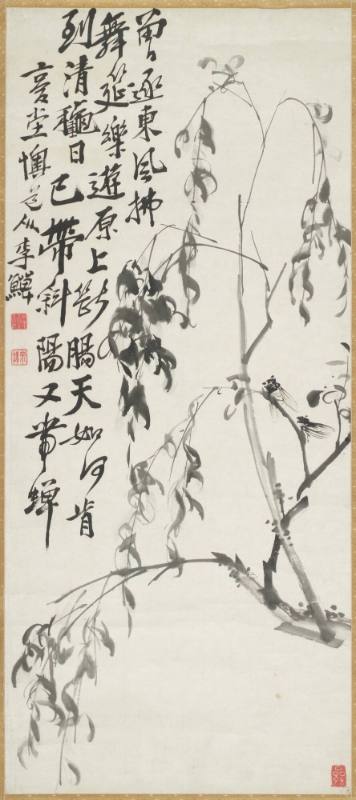 曾逐東風拂
舞筵樂遊原上斷腸天如何肯
到清龝日已帶斜陽又帶蟬
堂懊道人李鱓